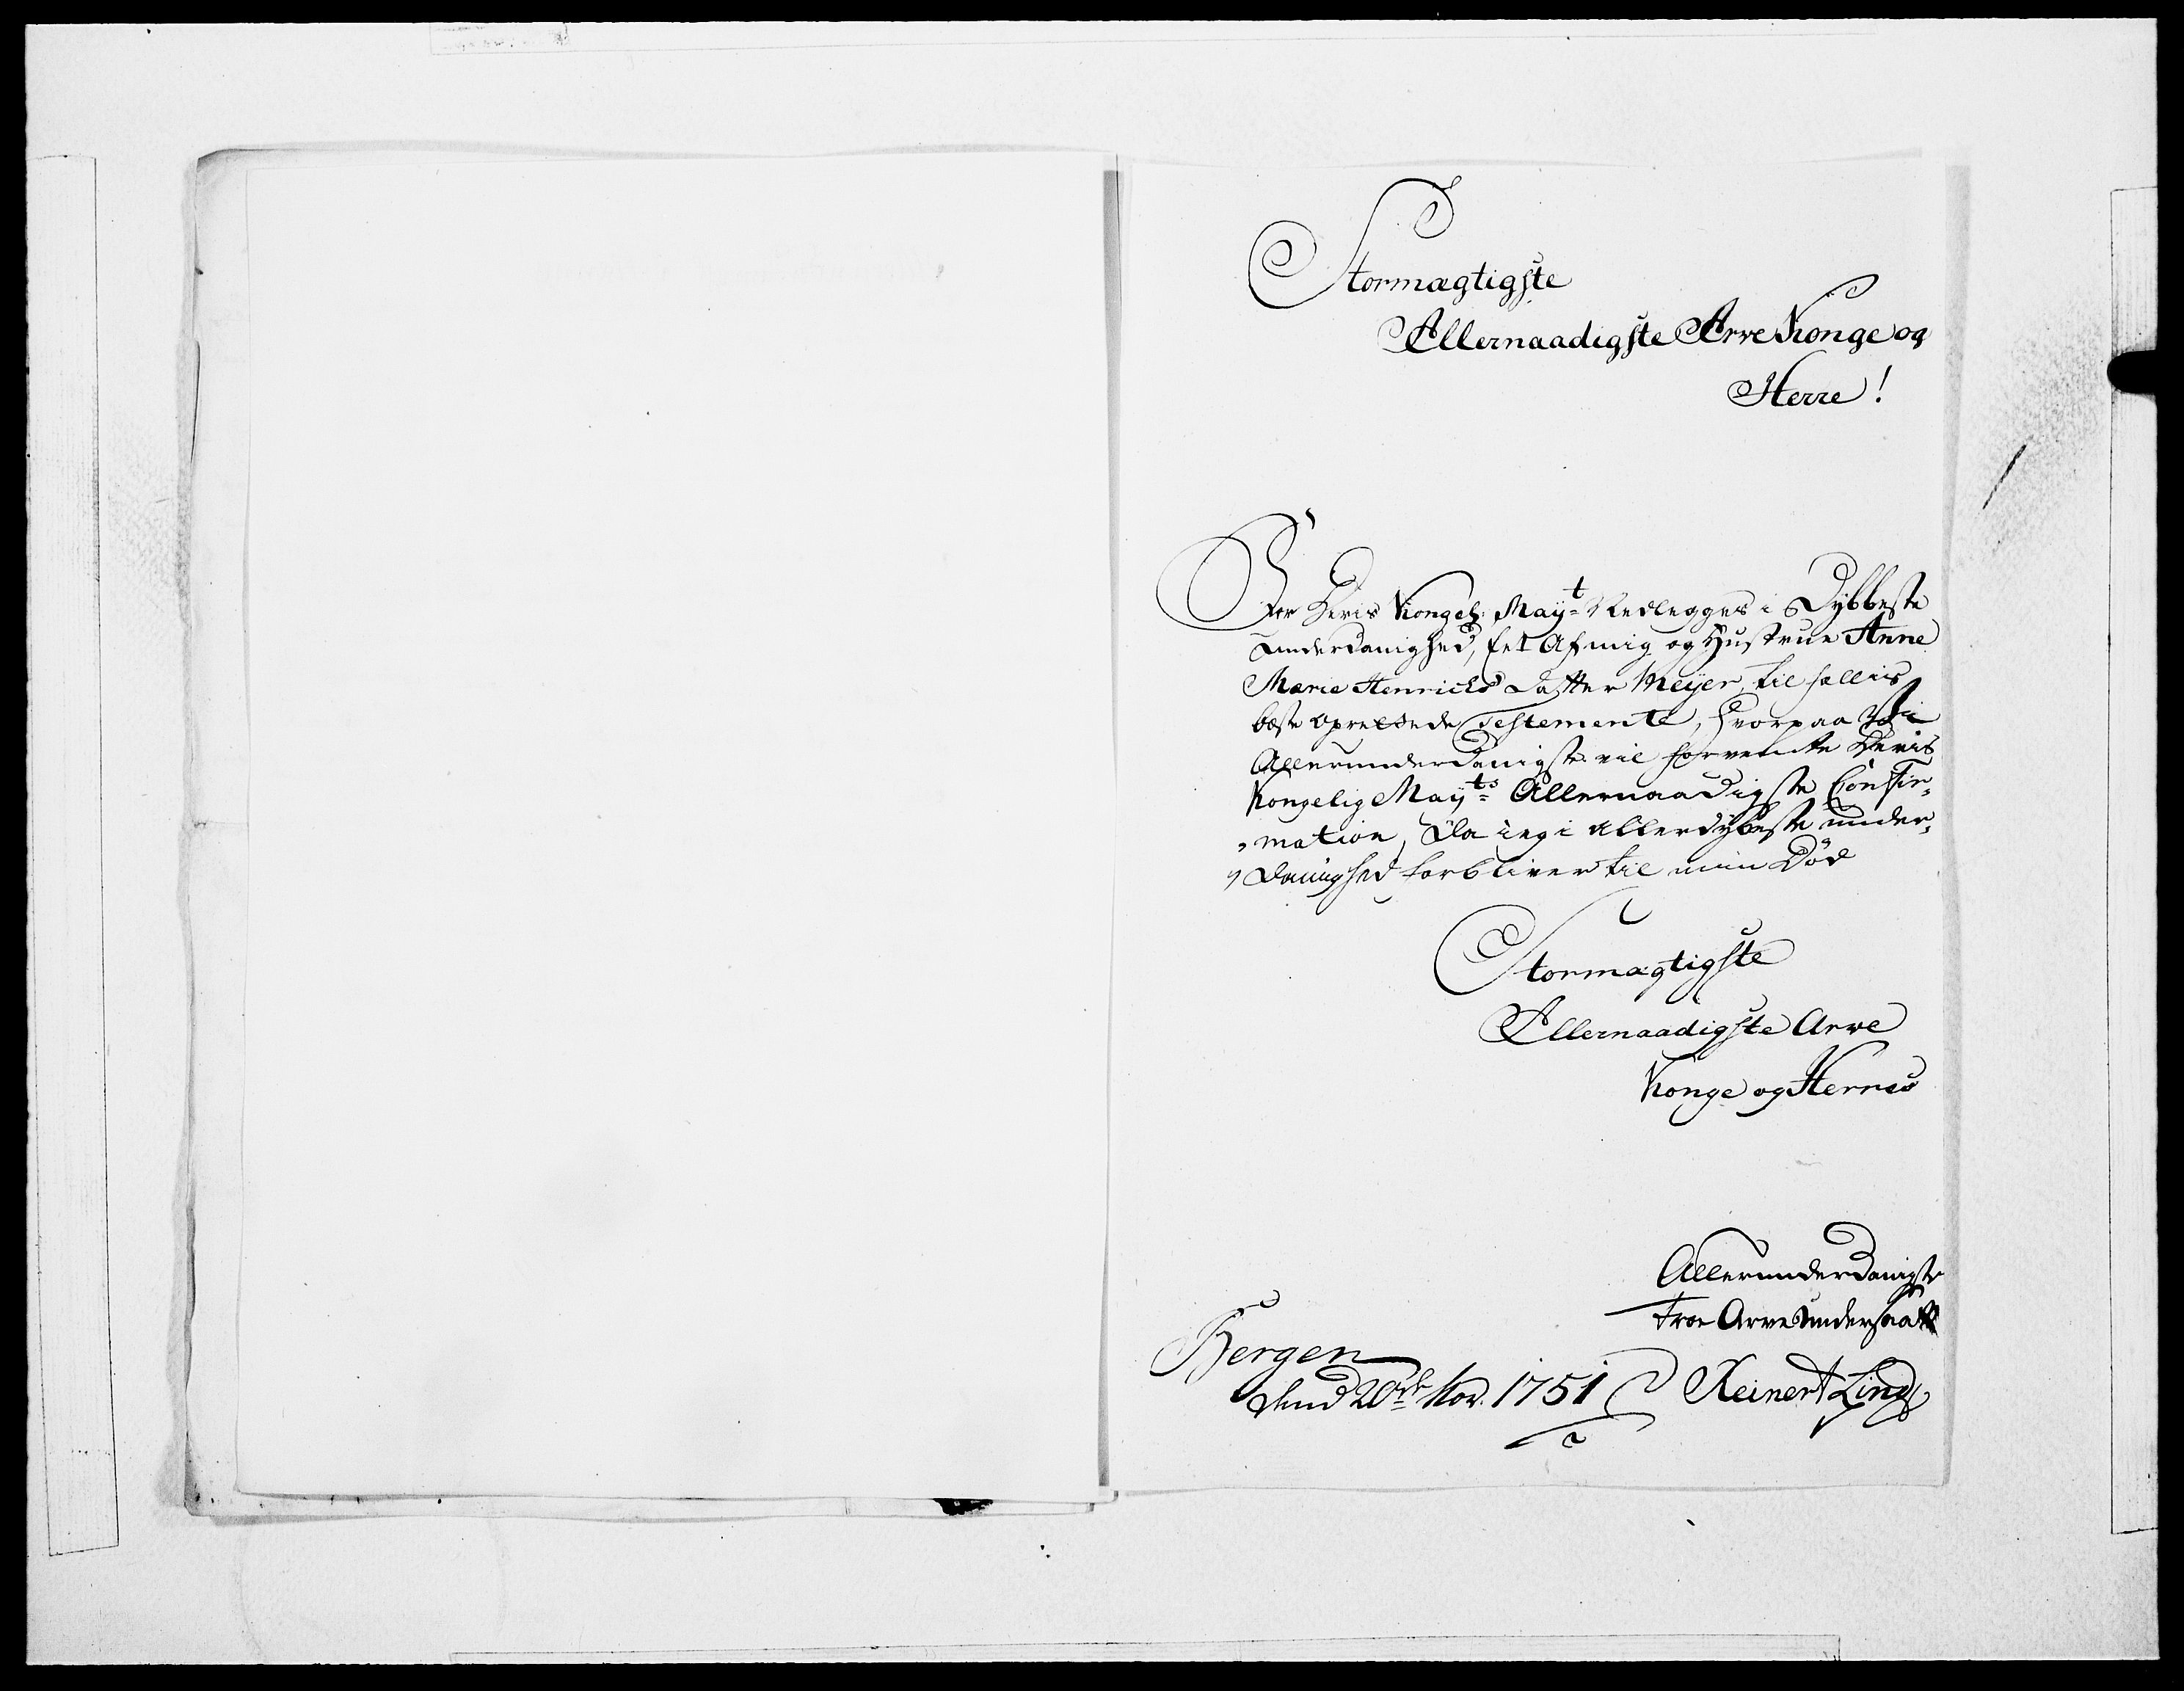 Stormægtigste
Allernaadigste Arve Konge og
Herre!
For Deris Kongel: Mayt= Nedlegges i Dybbeste
underdanighed, Eet Af mig og Hustrue Anne
Marie Henrichs Datter Meyer, til fællis
bæste oprettede Testemente, hvorpaa
Allerunderdanigst vil forvente Deris
Kongelig Mayts= Allernaadigste Confir„
„mation, Da ieg i allerdybeste under„
„danighed forbliver til min Død
Stormægtigste
Allernaadigste Arve
Konge og Herres
Allerunderdanigste
troe Arve Undersaatt
Bergen
dend 20de Nov. 1751 Reinert Ling